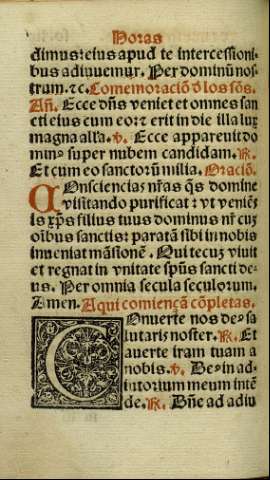 Horas
dimus: eius apud te intercessioni-
bus adiuuemur. Per dominũ nos-
trum. ⁊c. Comemoraciõ d̄ los sõs.
Añ. Ecce dñs veniet et omnes san
cti eius cum eo: ⁊ erit in die illa lux
magna alľa. ℣. Ecce apparevit do
minꝰ super nubem candidam. ℟.
Et cum eo sanctorũ milia. Oraciõ.
COnsciencias nr̃as q̃s domine
visitando purifica: vt veniẽs
iesus xp̃s filius tuus dominus nr̃ cuz
oĩbus sanctis: paratã sibi in nobis
inueniat mãsionẽ. Qui tecuz viuit
et regnat in vnitate sp̃us sancti de-
us. Per omnia secula seculorum.
Amen. Aqui comiençã cõpletas.
COnuerte nos deꝰ sa
lutaris noster. ℟. Et
auerte iram tuam a
nobis. ℣. Deꝰ in ad-
iutorium meum intẽ
de. ℟. Dñe ad adiu